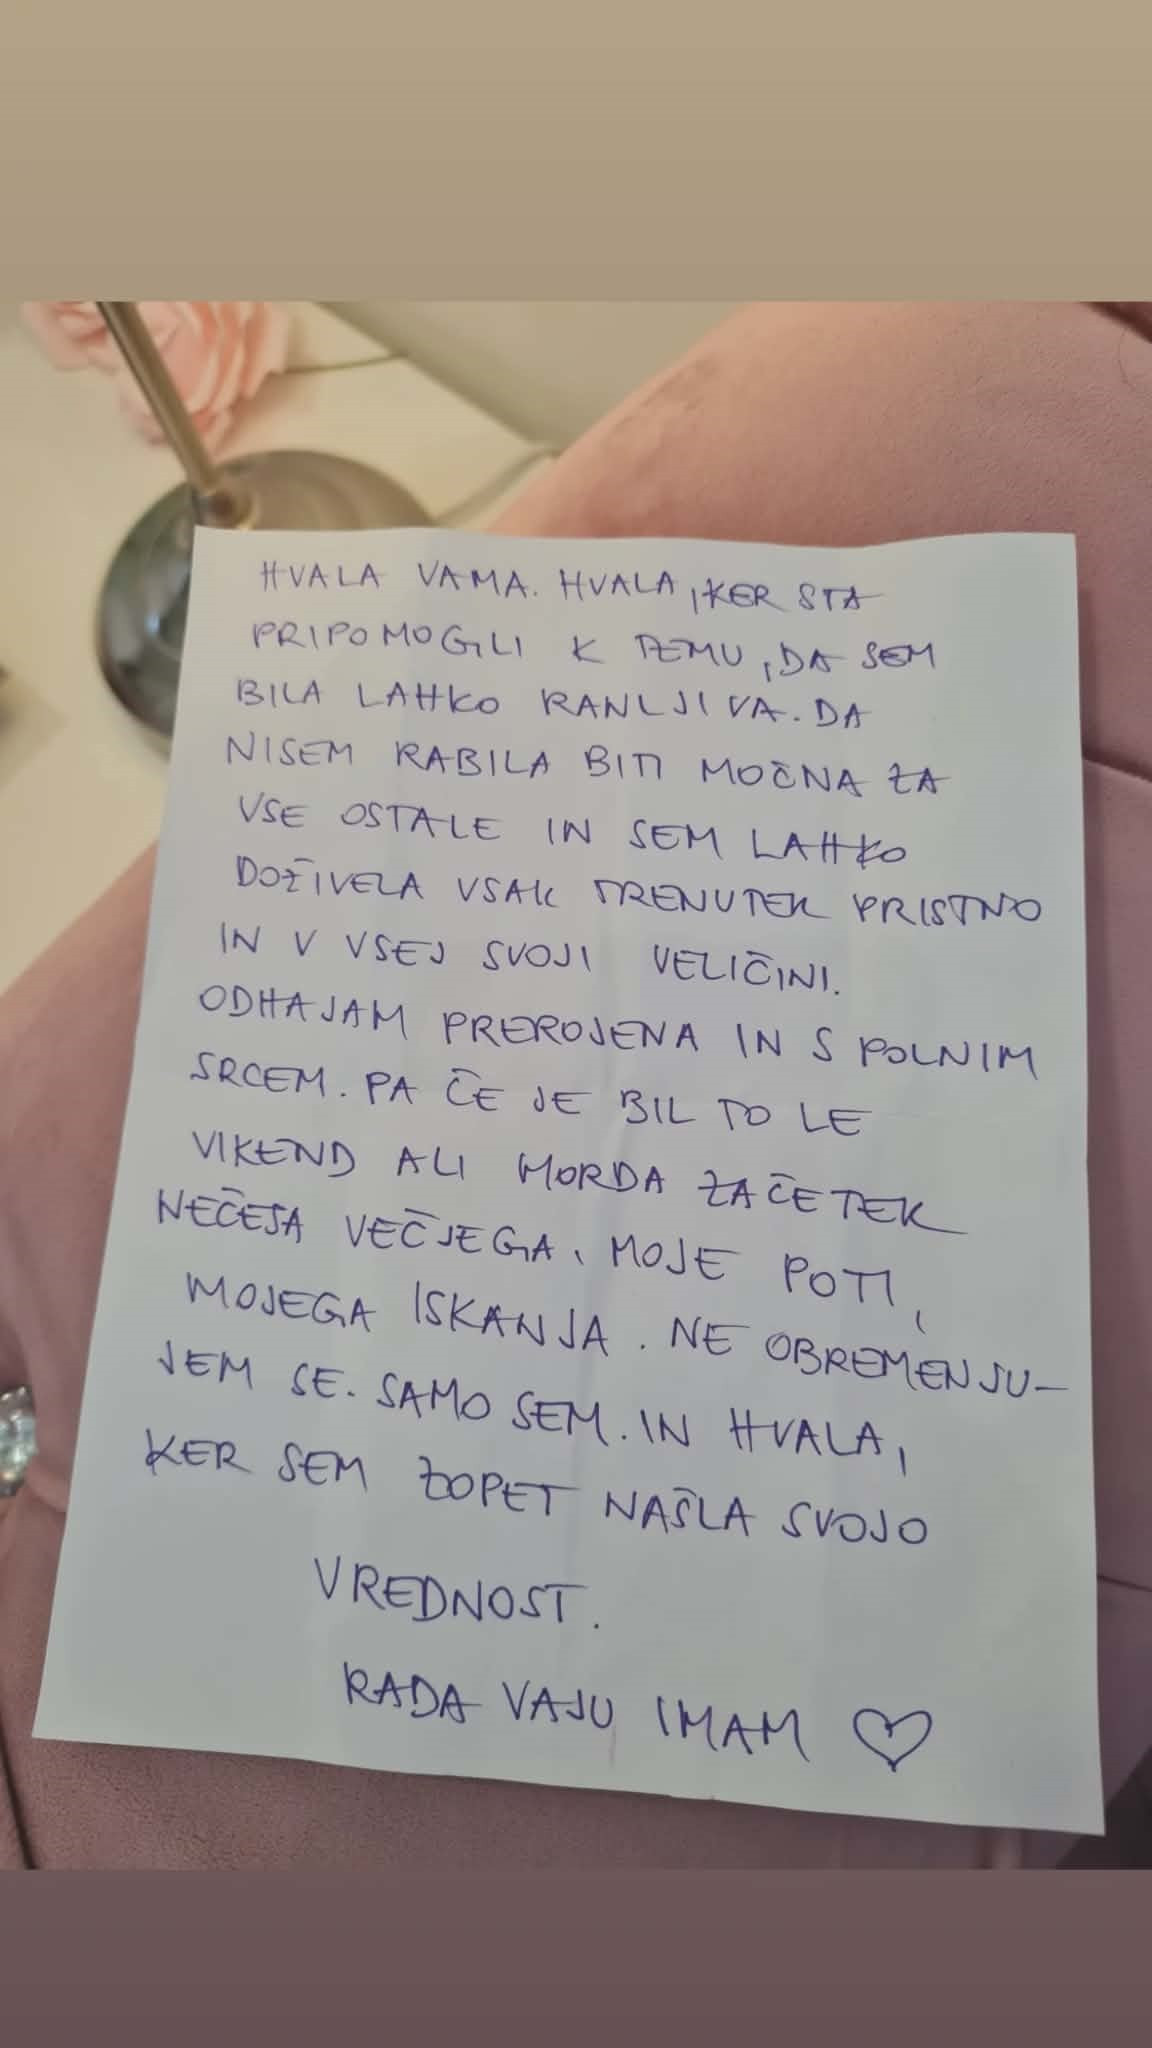 HVALA VAMA. HVALA, KER STA
PRIPOMOGLI K TEMU, DA SEM
BILA LAHKO RANLJIVA. DA
NISEM RABILA BITI MOČNA ZA
VSE OSTALE IN SEM LAHKO
DOŽIVELA VSAK TRENUTEK PRISTNO
IN V VSEJ SVOJI VELIČINI.
ODHAJAM PREROJENA IN S POLNIM
SRCEM. PA ČE JE BIL TO LE
VIKEND ALI MORDA ZAČETEK
NEČESA VEČJEGA, MOJE POTI,
MOJEGA ISKANJA. NE OBREMENJU-
JEM SE. SAMO SEM. IN HVALA,
KER SEM ZOPET NAŠLA SVOJO
VREDNOST.
RADA VAJU IMAM ♡